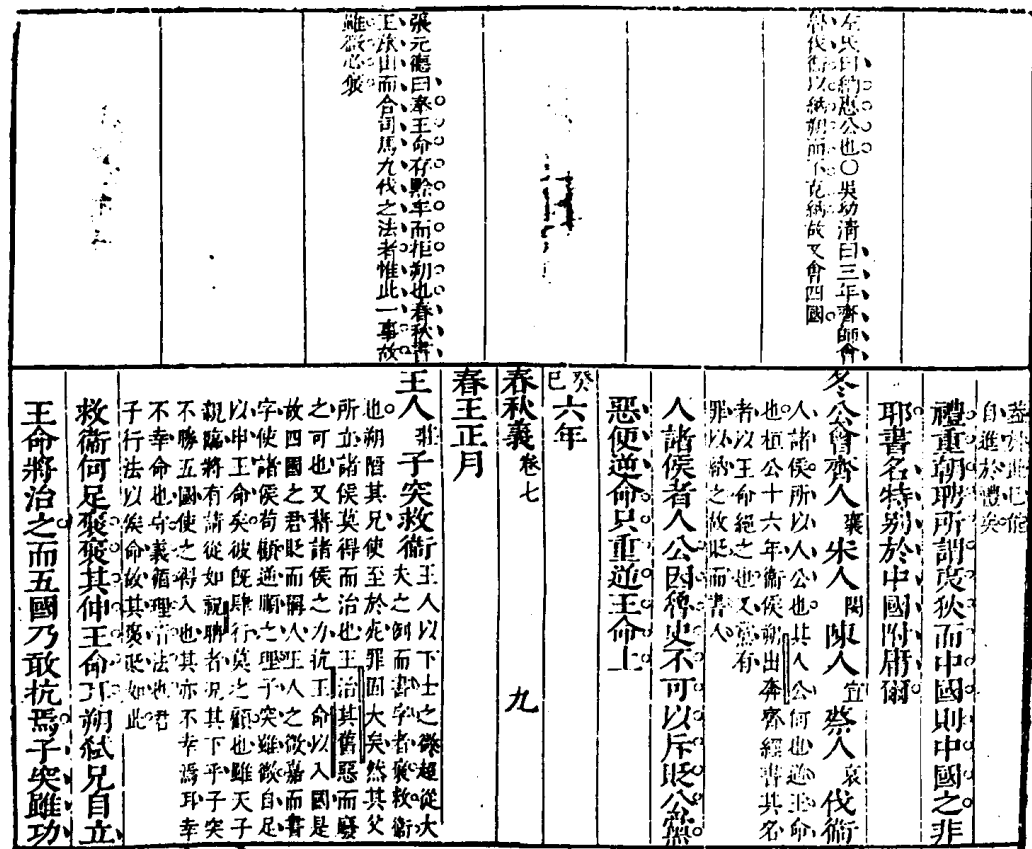 左氏曰納惠公也〇吳幼清曰三年齊師會
伐衛以納朔而不克納故又會四國
張元德曰奉王命存黔牟而拒朔也春秋書
王旅出而合司馬九伐之法者惟此一事故
雖微必褒
自進於禮矣
禮重朝聘所謂夷狄而中國則中國之非
耶書名特別於中國附庸爾
冬公會齊人襄宋人閔陳人宣蔡人哀伐衛
人諸侯所以人公也其人公何也逆王命
也桓公十六年衛侯朔出奔齊經書其名
者以王命絕之也又黨有
罪以納之故貶而書人
人諸侯者人公因魯史不可以斥貶公黨
惡使逆命只重逆王命上
癸巳六年
春秋義卷七 九
春王正月
王人莊子突救衛王人以下士之微超從大
夫之例而書字者褒救衛
也朔陷其兄使至於死罪固大矣然其父
所立諸侯莫得而治也王治其舊惡而廢
之可也又藉諸侯之力抗王命以入國是
故四國之君貶而稱人王人之微嘉而書
字使諸侯苟顧逆順之理子突雖微自足
以申王命矣彼既肆行莫之顧也雖天子
親臨將有請從如祝聃者況其下乎子突
不勝五國使之得入也其亦不幸焉耳幸
不幸命也守義循理者法也君
子行法以俟命故其褒貶如此
救衛何足褒褒其伸王命耳朔弒兄自立
王命將治之而五國乃敢抗焉子突雖功